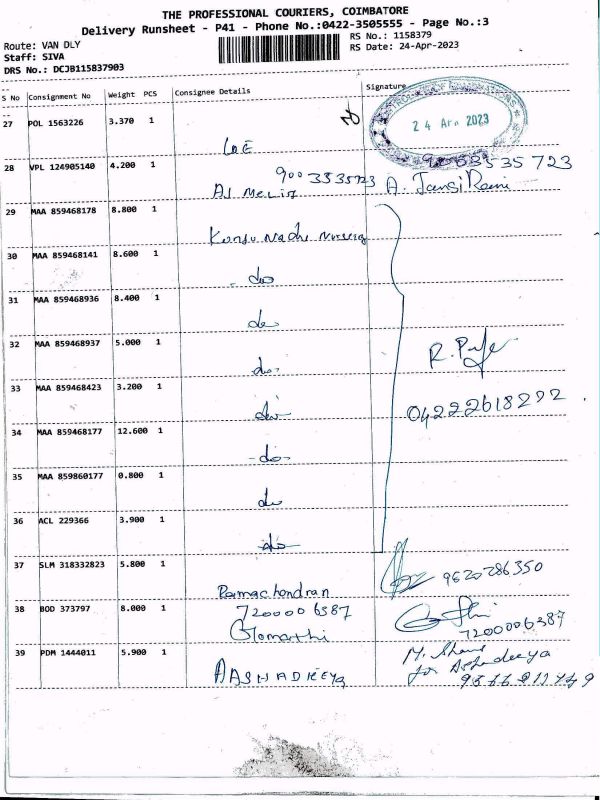 THE PROFESSIONAL COURIERS, COIMBATORE
Delivery Runsheet - P41 - Phone No.:0422-3505555 - Page No.:3
Route: VAN DLY
RS No.: 1158379
Staff: SIVA
RS Date: 24-Apr-2023
DRS No.: DCJB115837903
S No Consignment No Weight PCS Consignee Details Signature
27 POL 1563226 3.370 1
24 Apr 2023
28 VPL 124905140 4.200 1
9003535723
9003535723
A. Jansi Rani
29 MAA 859468178 8.800 1
30 MAA 859468141 8.600 1
do
31 MAA 859468936 8.400 1
do
32 MAA 859468937 5.000 1
do
33 MAA 859468423 3.200 1
do
04222618222
34 MAA 859468177 12.600 1
-do-
35 MAA 859860177 0.800 1
do
36 ACL 229366 3.900 1
do
37 SLM 318332823 5.800 1
9620286350
Ramachandran
38 BOD 373797 8.000 1
7200006387
7200006387
Gomathi
39 PDM 1444011 5.900 1